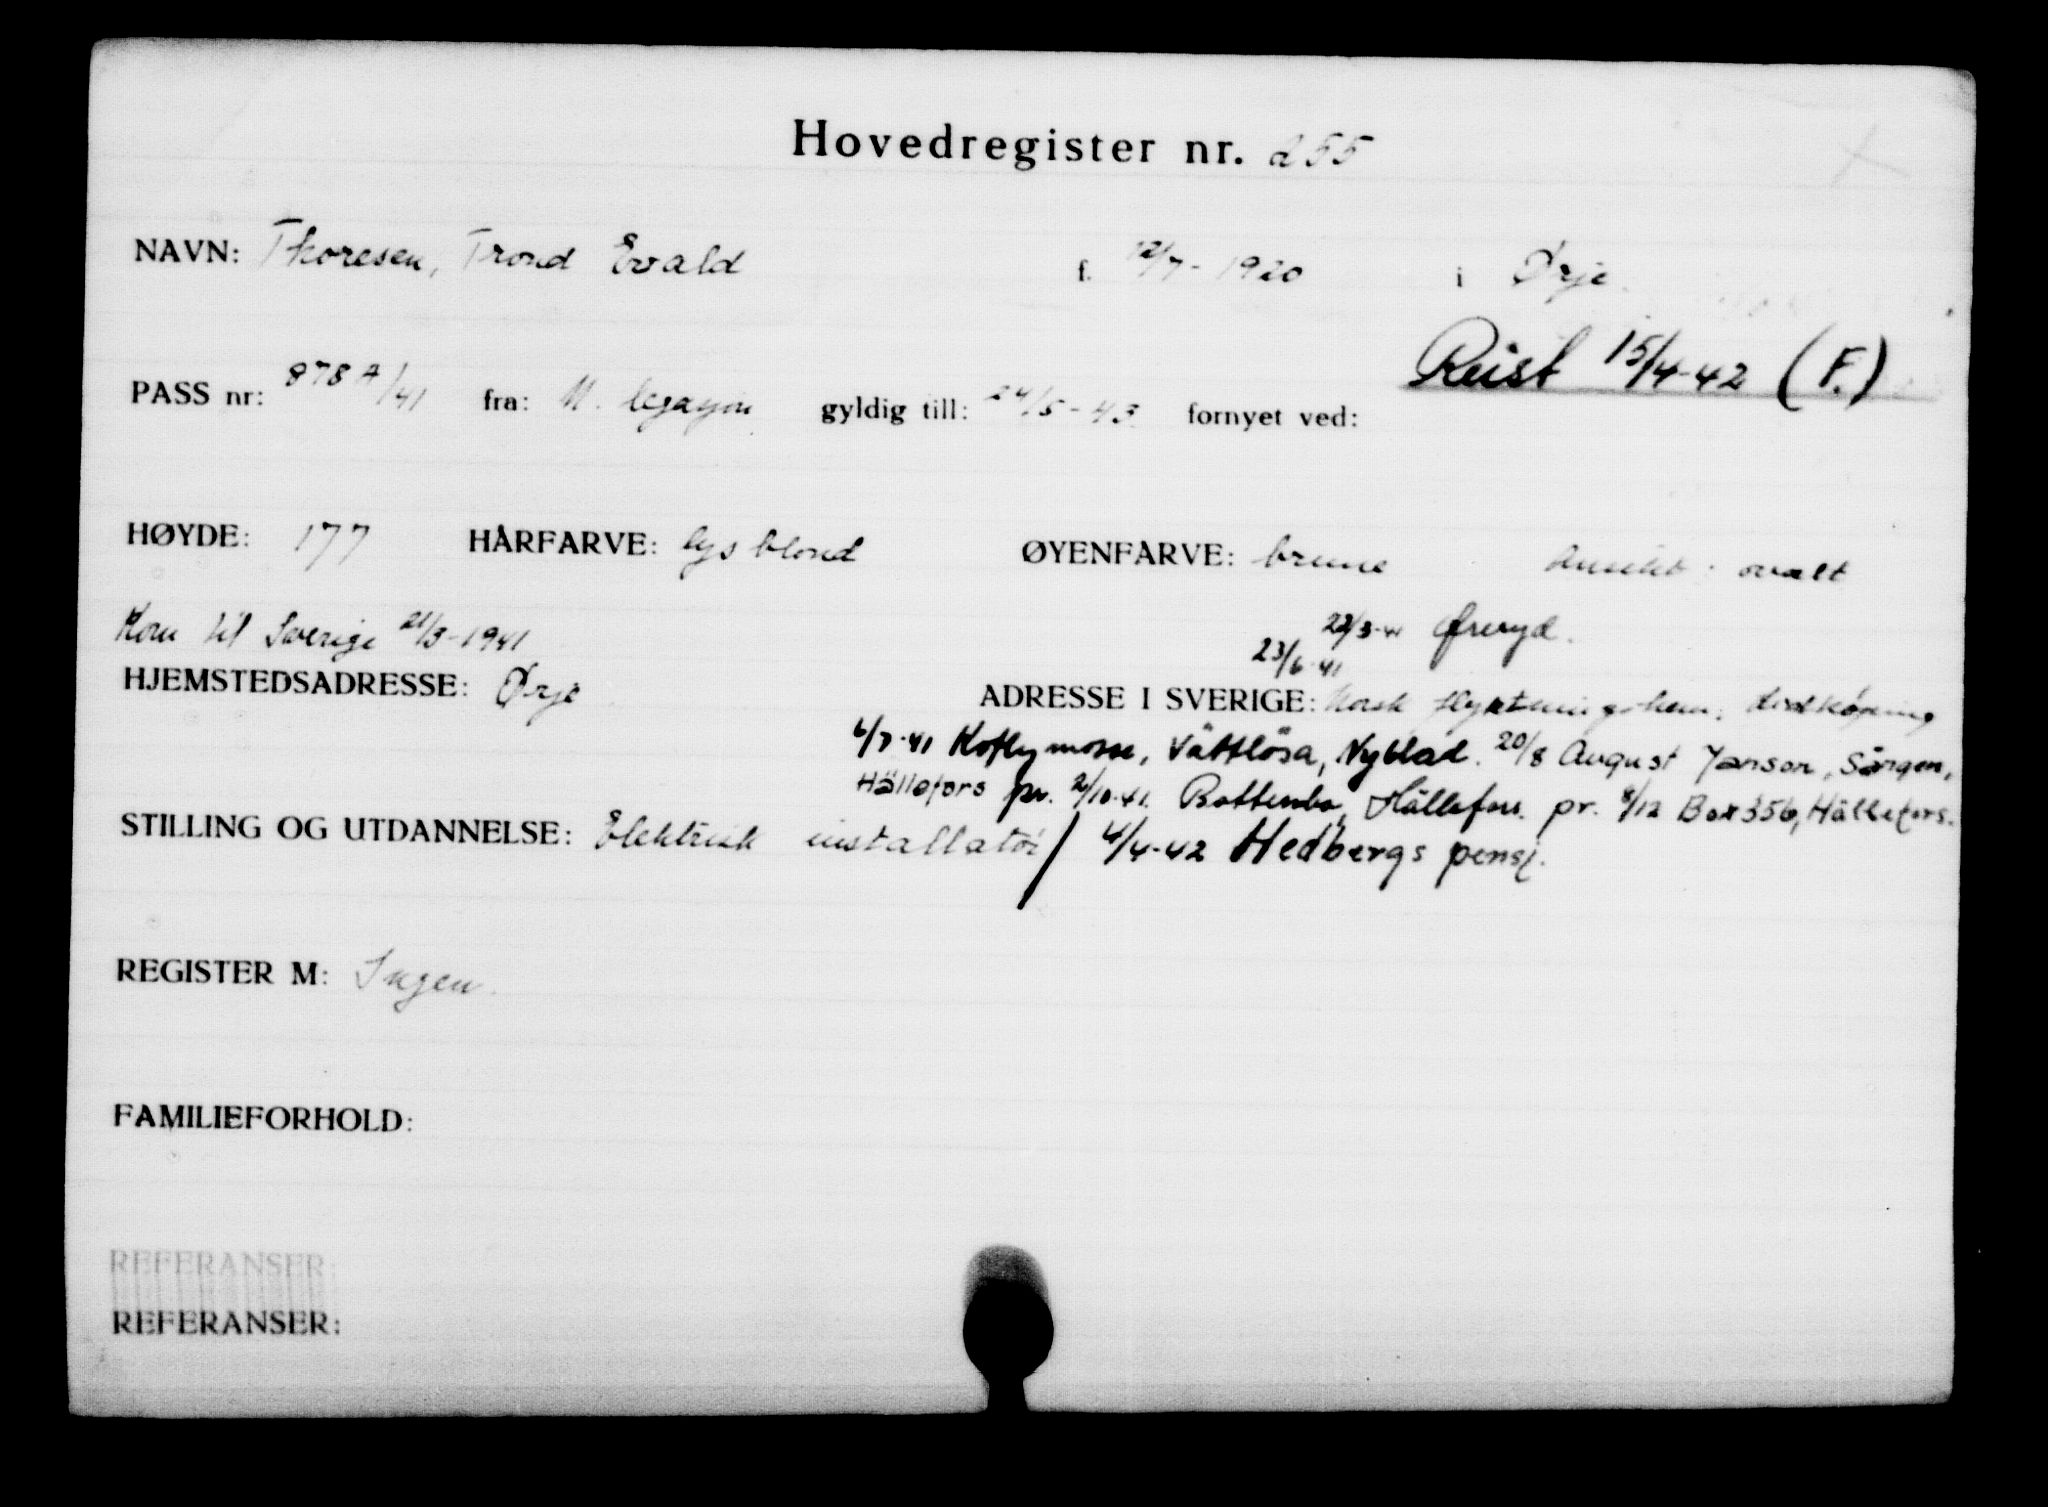 Hovedregister nr. 255
NAVN: Thoresen, Trond Evald f. 12/7-1920 i Ørje.
Reist 15/4-42 (F.)
PASS nr: 878 A/41 fra: N. legasjon gyldig till: 24/5-43 fornyet ved:
HØYDE: 177 HÅRFARVE: lys blond ØYENFARVE: brune Ansikt: ovalt
Kom til Sverige 21/3-1941 22/3-41 Øreryd.
23/6-41
HJEMSTEDSADRESSE: Ørje ADRESSE I SVERIGE: Norsk flyktningshem, Lidköping
6/7-41 Vättlösa, Nyblad. 20/8 August Janson, Sången,
Hällefors pr. 2/10-41. Bottenbo, Hällefors. pr. 8/12 Box 356, Hällefors.
STILLING OG UTDANNELSE: Elektrisk installatør / 4/4-42 Hedbergs pensj.
REGISTER M: Ingen.
FAMILIEFORHOLD:
REFERANSER:
REFERANSER: